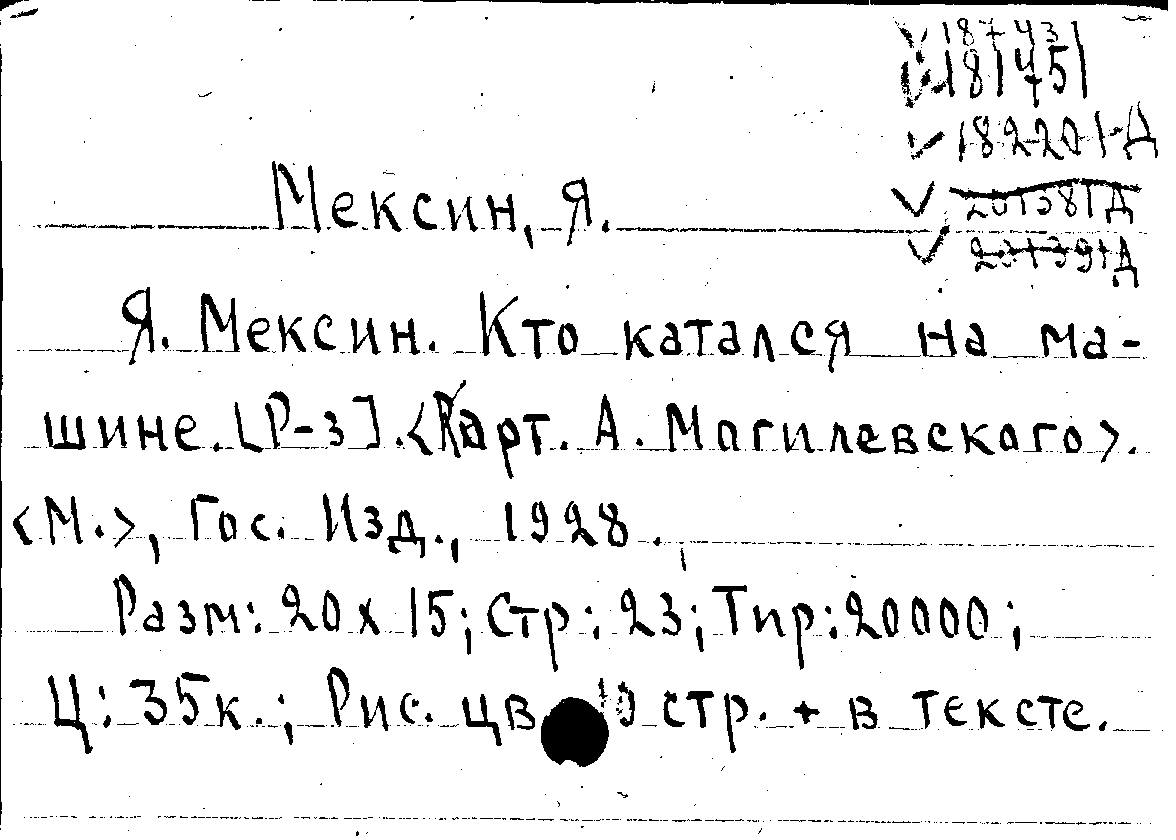 187431
181451
182201-Д
Мексин, Я.
231391Д
Я. Мексин. Кто катался на ма-
шине. [Р-з]. <Карт. А. Могилевского>.
<М.>, Гос. Изд., 1928.
Разм: 20 х 15; Стр: 23; Тир: 20000;
Ц: 35к.; Рис. цв 10 стр. + в тексте.